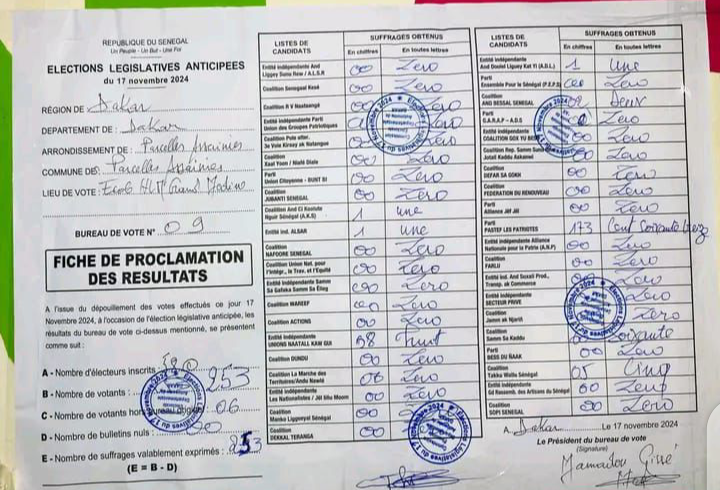 REPUBLIQUE DU SENEGAL
Un Peuple - Un But - Une Foi
ELECTIONS LEGISLATIVES ANTICIPEES
du 17 novembre 2024
REGION DE Dakar
DEPARTEMENT DE : Dakar
ARRONDISSEMENT DE : Parcelles Assainies
COMMUNE DE : Parcelles Assainies
LIEU DE VOTE : HLM Grand Médine
BUREAU DE VOTE N° 09
FICHE DE PROCLAMATION
DES RESULTATS
A l'issue du dépouillement des votes effectués ce jour 17
Novembre 2024, à l'occasion de l'élection législative anticipée, les
résultats du bureau de vote ci-dessus mentionné, se présentent
comme suit :
A - Nombre d'électeurs inscrits :
B - Nombre de votants : 253
C - Nombre de votants hors bureau 06
D - Nombre de bulletins nuls : 00
E - Nombre de suffrages valablement exprimés : 253
(E = B - D)
LISTES DE CANDIDATS SUFFRAGES OBTENUS
En chiffres En toutes lettres
Entité indépendante And
Liggey Sunu Rew / A.L.S.R 00 Zero
Coalition Senegaal Kesé 00 Zero
Coalition R V Naataangé 00 Zero
Entité indépendante Parti
Union des Groupes Patriotiques Zero
Coalition Pole alter.
3e Voie Kiraay ak Natangue 00 Zero
Coalition
Xaal Yoon / Nialé Diale 00 Zero
Parti
Union Citoyenne - BUNT BI 00 Zero
Coalition
JUBANTI SENEGAL 00 Zero
Coalition And Ci Koolute
Nguir Sénégal (A.K.S) 1 Une
Entité ind. ALSAR 1 Une
Coalition
NAFOORE SENEGAL 00 Zero
Coalition Union Nat. pour
l'Intégr., le Trav. et l'Equité 00 Zero
Entité indépendante Samm
Sa Gafaka Samm Sa Eleg 00 Zero
Coalition WAREEF 00 Zero
Coalition ACTIONS 00 Zero
Entité indépendante
UNIONS NAATALL KAW GUI 08 huit
Coalition DUNDU 00 Zero
Coalition La Marche des
Territoires/Andu Nawlé 00 Zero
Entité indépendante
Les Nationalistes / Jël liñu Moom 00 Zero
Coalition
Manko Liggeeyal Sénégal 00
Coalition
DEKKAL TERANGA 00
LISTES DE CANDIDATS SUFFRAGES OBTENUS
En chiffres En toutes lettres
Entité indépendante
And Doolel Liguey Kat Yi (A.D.L.) 1 Une
Parti
Ensemble Pour le Sénégal (P.E.P.S) 00 Zero
Coalition
AND BESSAL SENEGAL 02 Deux
Parti
C.A.R.A.P - A.D.S Zero
Entité indépendante
COALITION GOX YU BEES 00 Zero
Coalition Rep. Samm Sunu
Jotaii Kaddu Askanwi 00 Zero
Coalition
DEFAR SA GOKH 00 Zero
Coalition
FEDERATION DU RENOUVEAU 00 Zero
Parti
Alliance Jëf Jël 00 Zero
Parti
PASTEF LES PATRIOTES 173 Cent Soixante treize
Entité indépendante Alliance
Nationale pour la Patrie (A.N.P) 00 Zero
Coalition
FARLU 00 Zero
Entité ind. And Suxali Prod.,
Transp. ak Commerce 00 Zero
Entité indépendante
SECTEUR PRIVE Zero
Coalition
Jamm ak Njariñ Zero
Coalition
Samm Sa Kaddu Soixante
Parti
BESS DU NAKK 00 Zero
Coalition
Takku Wallu Sénégal 05 Cinq
Entité indépendante
Gd Rassemb. des Artisans du Sénégal 00 Zero
Coalition
SOPI SENEGAL 00 Zero
A, Dakar Le 17 novembre 2024
Le Président du bureau de vote
(Signature)
Mamadou